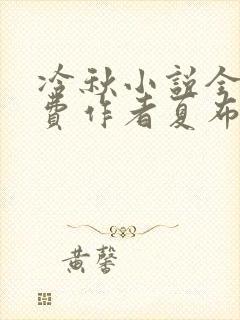 冷秋小説全
費作者夏布
黄馨